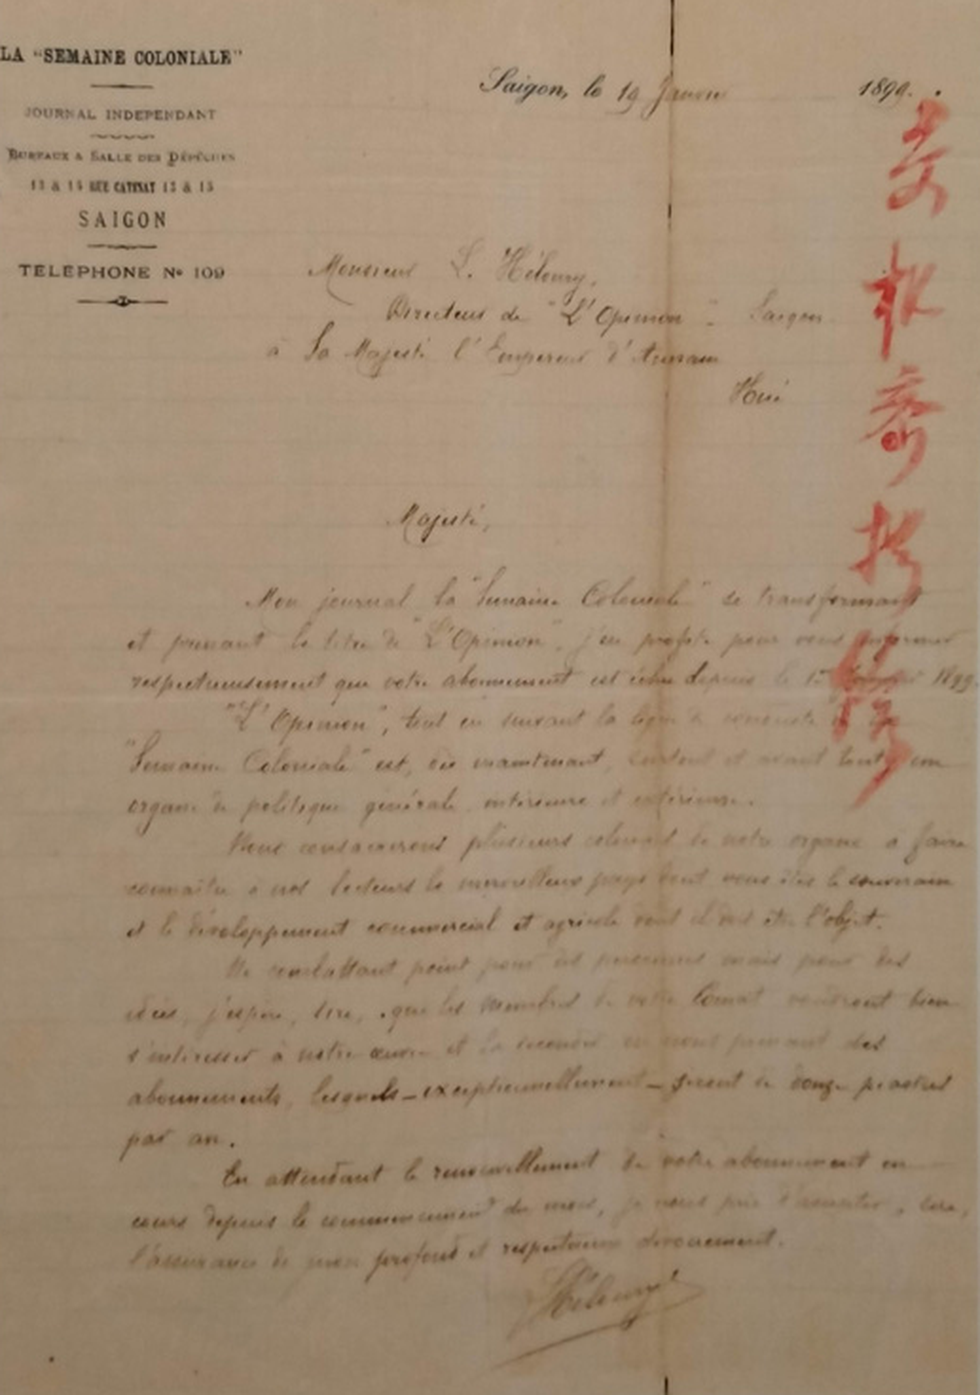 LA "SEMAINE COLONIALE"
JOURNAL INDEPENDANT
BUREAUX & SALLE DES DÉPÊCHES
13 & 15 RUE CATINAT 13 & 15
SAIGON
TÉLÉPHONE No 109
Saigon, le 19 Janvier 1899.
Monsieur L. Héloury,
Directeur de "L'Opinion" - Saigon
à Sa Majesté l'Empereur d'Annam
Hué
Majesté,
Mon journal la "Semaine Coloniale" se transformant
et prenant le titre de "L'Opinion", j'en profite pour vous informer
respectueusement que votre abonnement est échu depuis le 1er 1899.
"L'Opinion", tout en suivant la ligne de conduite
"Semaine Coloniale" est, dès maintenant, surtout et avant tout, un
organe de politique générale, intérieure et extérieure.
Nous consacrerons plusieurs colonnes de notre organe à faire
connaître à nos lecteurs le merveilleux pays dont vous êtes le souverain
et le développement commercial et agricole dont il doit être l'objet.
Ne combattant point pour des personnes mais pour des
idées, j'espère, Sire, que les membres de votre Comat voudront bien
s'intéresser à notre œuvre et la seconder en nous prenant des
abonnements, lesquels - exceptionnellement - seront de douze piastres
par an.
En attendant le renouvellement de votre abonnement en
cours depuis le commencement du mois, je vous prie d'accepter, Sire,
l'assurance de mon profond et respectueux dévouement.
Héloury